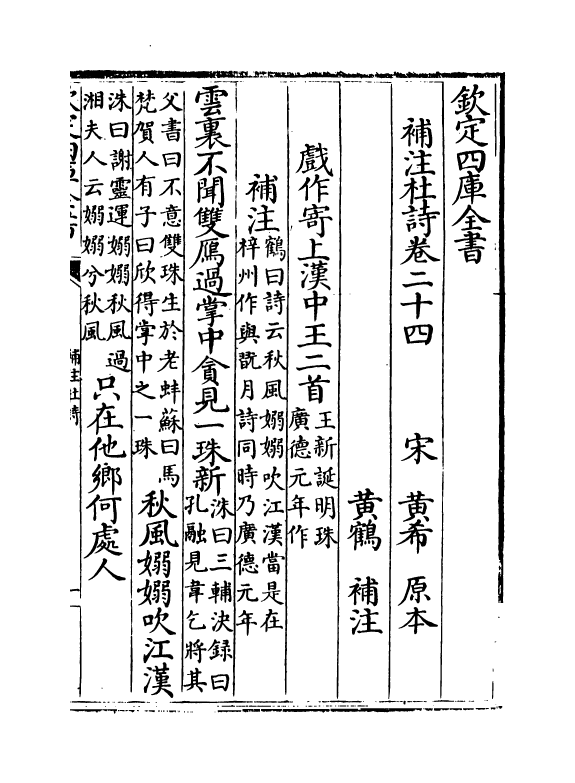 欽定四庫全書
補注杜詩卷二十四　宋　黃希　原本
黃鶴　補注
戲作寄上漢中王二首
王新誕明珠
廣德元年作
補注
鶴曰詩云秋風嫋嫋吹江漢當是在
梓州作與翫月詩同時乃廣德元年
雲裏不聞雙鴈過掌中貪見一珠新
洙曰三輔決録曰
孔融見韋乞將其
父書曰不意雙珠生於老蚌蘇曰馬
梵賀人有子曰欣得掌中之一珠
秋風嫋嫋吹江漢
洙曰謝靈運嫋嫋秋風過
湘夫人云嫋嫋兮秋風
只在他鄉何處人
補注杜詩
一